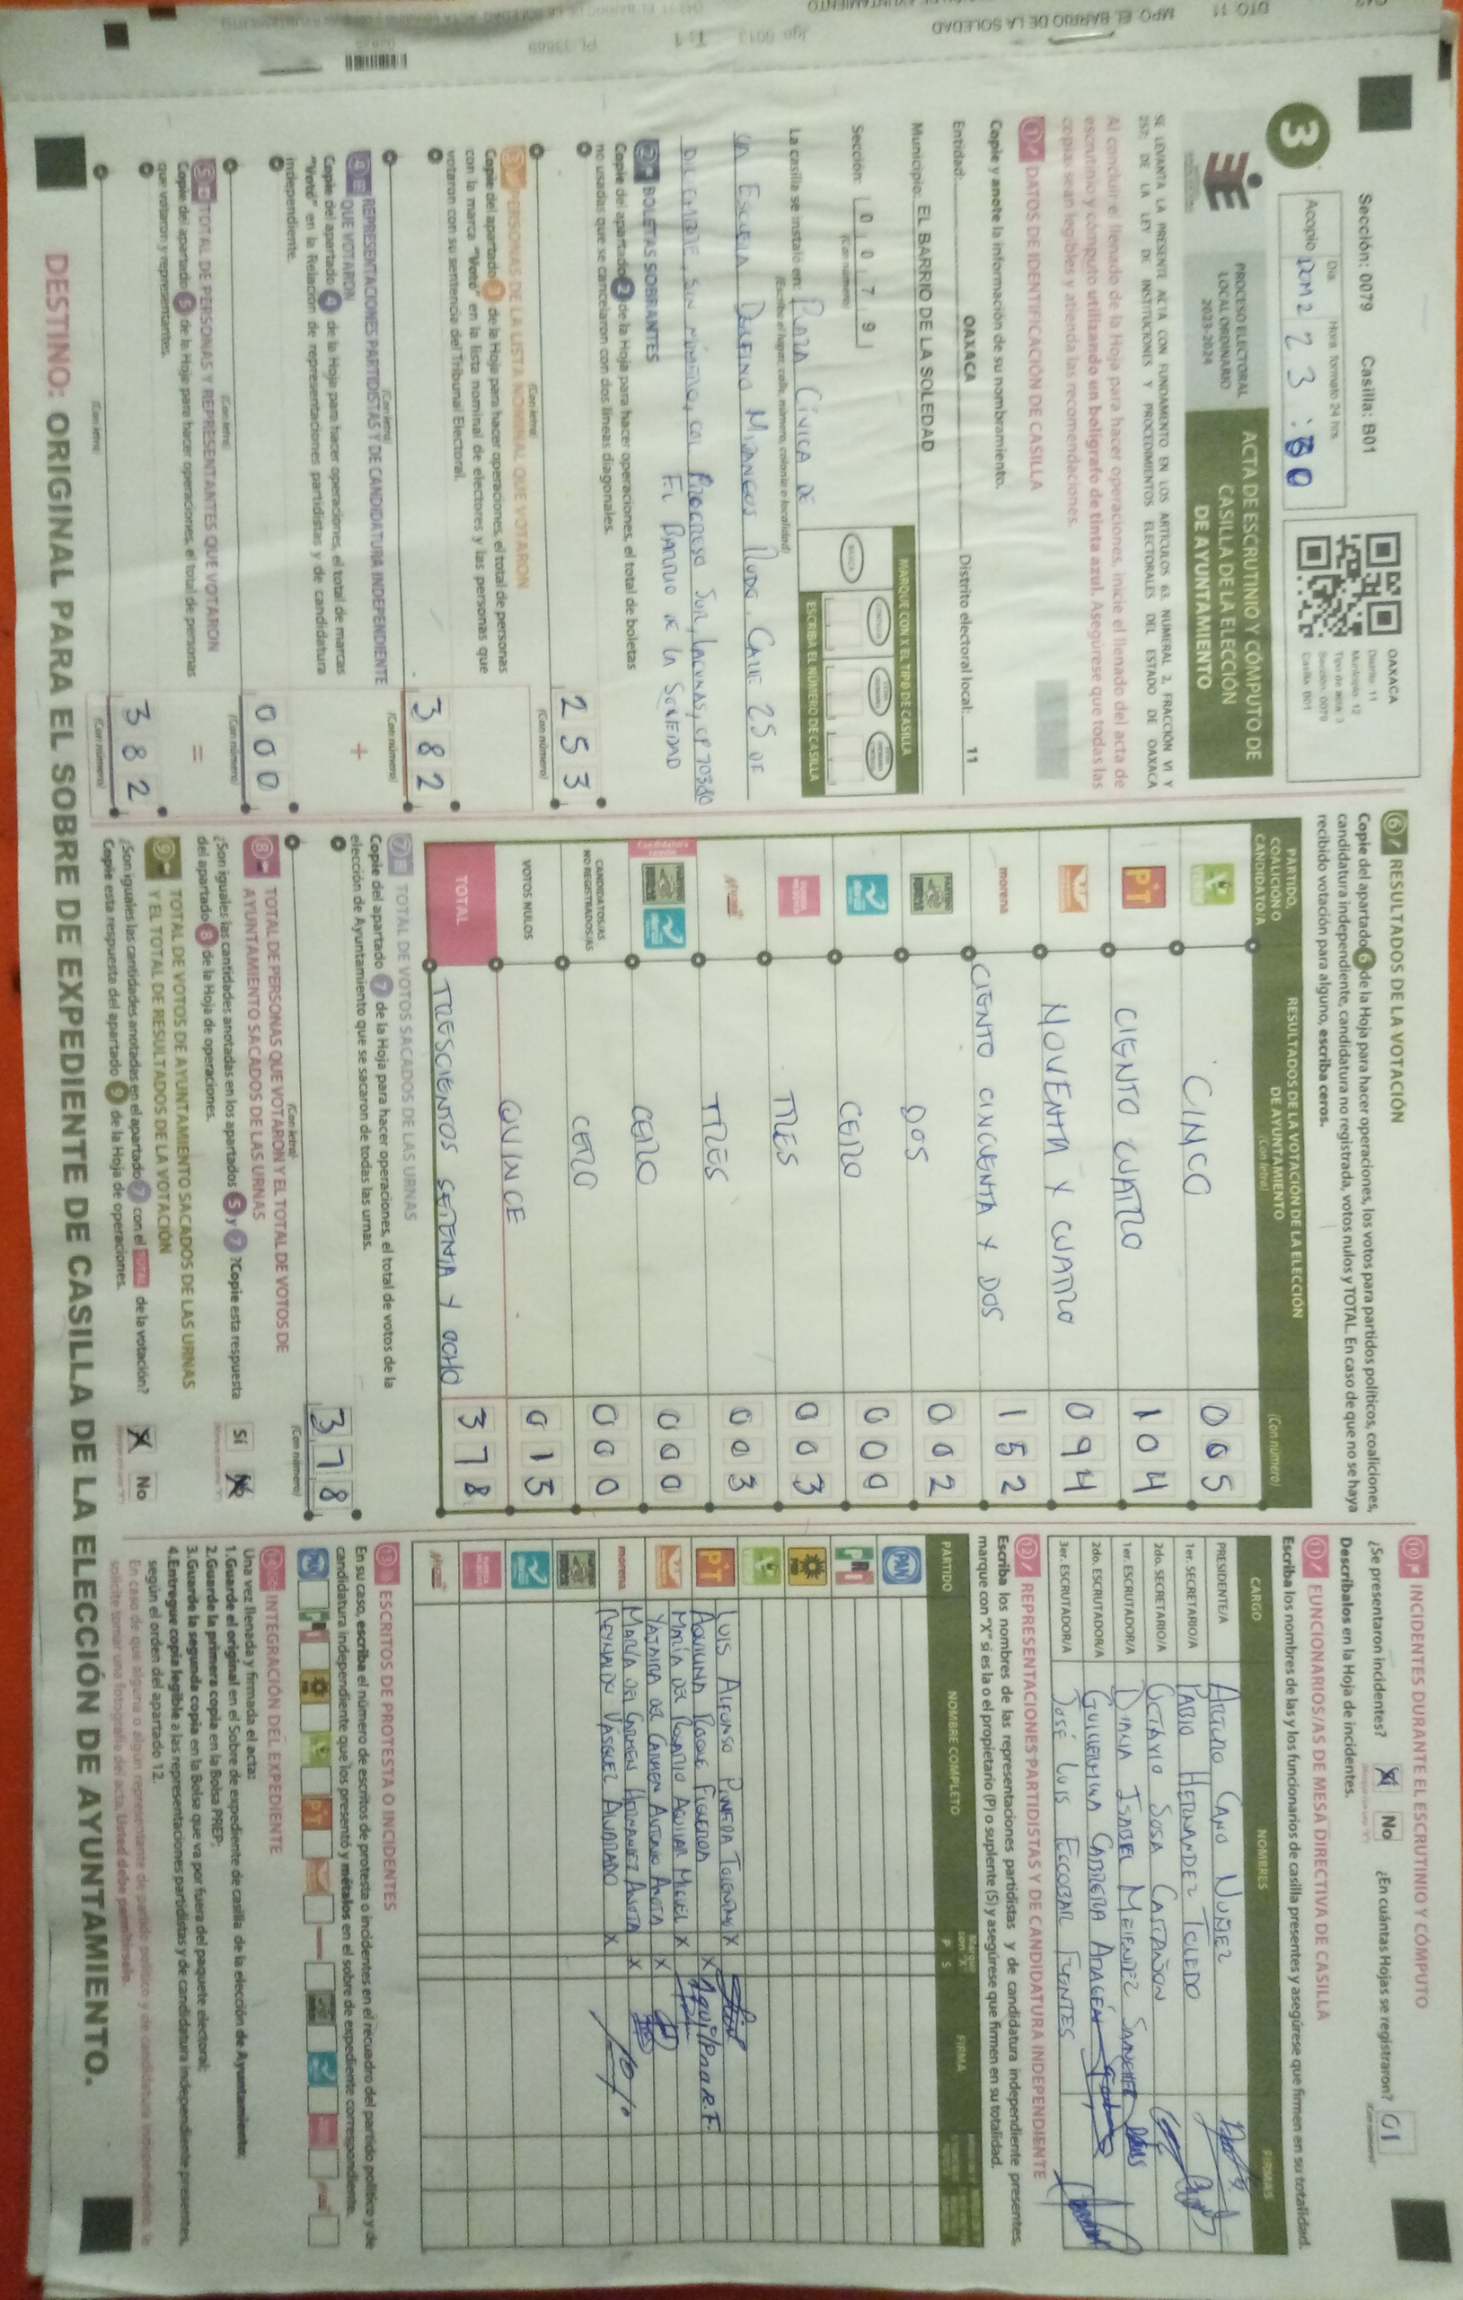 Sección: 0079 Casilla: B01
3
Día Hora formato 24 hrs.
Acopio DOM 2 23:
OAXACA
Distrito 11
Municipio 12
Tipo de acta 3
Sección 0079
Casilla B01
PROCESO ELECTORAL
LOCAL ORDINARIO
2023-2024
ACTA DE ESCRUTINIO Y CÓMPUTO DE
CASILLA DE LA ELECCIÓN
DE AYUNTAMIENTO
SE LEVANTA LA PRESENTE ACTA CON FUNDAMENTO EN LOS ARTÍCULOS 63, NUMERAL 2, FRACCIÓN VI Y
257; DE LA LEY DE INSTITUCIONES Y PROCEDIMIENTOS ELECTORALES DEL ESTADO DE OAXACA
Al concluir el llenado de la Hoja para hacer operaciones, inicie el llenado del acta de
escrutinio y cómputo utilizando un bolígrafo de tinta azul. Asegúrese que todas las
copias sean legibles y atienda las recomendaciones.
1 DATOS DE IDENTIFICACIÓN DE CASILLA
Copie y anote la información de su nombramiento.
Entidad: OAXACA Distrito electoral local: 11
Municipio: EL BARRIO DE LA SOLEDAD
Sección: 0 0 7 9
(Con número)
MARQUE CON X EL TIPO DE CASILLA
ESCRIBA EL NÚMERO DE CASILLA
La casilla se instaló en: PLAZA CÍVICA DE
(Escriba el lugar, calle, número, colonia o localidad)
LA ESCUELA CALLE 25 DE
SIN NÚMERO, COL PROGRESO SUR, LAGUNAS, CP 70380
EL BARRIO DE LA SOLEDAD
2 BOLETAS SOBRANTES
Copie del apartado 2 de la Hoja para hacer operaciones, el total de boletas
no usadas que se cancelaron con dos líneas diagonales.
253
(Con letra) (Con número)
3 PERSONAS DE LA LISTA NOMINAL QUE VOTARON
Copie del apartado 3 de la Hoja para hacer operaciones, el total de personas
con la marca "Votó" en la lista nominal de electores y las personas que
votaron con su sentencia del Tribunal Electoral.
382
(Con letra) (Con número)
4 REPRESENTACIONES PARTIDISTAS Y DE CANDIDATURA INDEPENDIENTE
QUE VOTARON +
Copie del apartado 4 de la Hoja para hacer operaciones, el total de marcas
"Votó" en la Relación de representaciones partidistas y de candidatura
independiente.
000
(Con letra) (Con número)
5 TOTAL DE PERSONAS Y REPRESENTANTES QUE VOTARON =
Copie del apartado 5 de la Hoja para hacer operaciones, el total de personas
que votaron y representantes.
382
(Con letra) (Con número)
6 RESULTADOS DE LA VOTACIÓN
Copie del apartado 6 de la Hoja para hacer operaciones, los votos para partidos políticos, coaliciones,
candidatura independiente, candidatura no registrada, votos nulos y TOTAL. En caso de que no se haya
recibido votación para alguno, escriba ceros.
PARTIDO, COALICIÓN O CANDIDATO/A
RESULTADOS DE LA VOTACIÓN DE LA ELECCIÓN DE AYUNTAMIENTO
(Con letra) (Con número)
VERDE CINCO 005
PT CIENTO CUATRO 104
NOVENTA Y CUATRO 094
morena CIENTO CINCUENTA Y DOS 152
DOS 002
CERO 000
TRES 003
TRES 003
CERO 000
CANDIDATOS/AS NO REGISTRADOS/AS CERO 000
VOTOS NULOS QUINCE 015
TOTAL TRESCIENTOS SETENTA Y OCHO 378
7 TOTAL DE VOTOS SACADOS DE LAS URNAS
Copie del apartado 7 de la Hoja para hacer operaciones, el total de votos de la
elección de Ayuntamiento que se sacaron de todas las urnas.
378
(Con letra) (Con número)
8 TOTAL DE PERSONAS QUE VOTARON Y EL TOTAL DE VOTOS DE
AYUNTAMIENTO SACADOS DE LAS URNAS
¿Son iguales las cantidades anotadas en los apartados 5 y 7? Copie esta respuesta
del apartado 8 de la Hoja de operaciones.
Sí X
9 TOTAL DE VOTOS DE AYUNTAMIENTO SACADOS DE LAS URNAS
Y EL TOTAL DE RESULTADOS DE LA VOTACIÓN
¿Son iguales las cantidades anotadas en el apartado 7 con el TOTAL de la votación?
Copie esta respuesta del apartado 9 de la Hoja de operaciones.
X No
10 INCIDENTES DURANTE EL ESCRUTINIO Y CÓMPUTO
¿Se presentaron incidentes? X No ¿En cuántas Hojas se registraron? 01
Descríbalos en la Hoja de incidentes.
11 FUNCIONARIOS/AS DE MESA DIRECTIVA DE CASILLA
Escriba los nombres de las y los funcionarios de casilla presentes y asegúrese que firmen en su totalidad.
CARGO NOMBRES FIRMAS
PRESIDENTE/A ARTURO CANO NUÑEZ
1er. SECRETARIO/A PABLO HERNANDEZ TOLEDO
2do. SECRETARIO/A OCTAVIO SOSA CASTAÑON
1er. ESCRUTADOR/A DIALIA ISABEL MELENDEZ SANCHEZ
2do. ESCRUTADOR/A GUILLERMINA CABRERA
3er. ESCRUTADOR/A JOSÉ LUIS ESCOBAR FUENTES
12 REPRESENTACIONES PARTIDISTAS Y DE CANDIDATURA INDEPENDIENTE
Escriba los nombres de las representaciones partidistas y de candidatura independiente presentes,
marque con "X" si es la o el propietario (P) o suplente (S) y asegúrese que firmen en su totalidad.
PARTIDO NOMBRE COMPLETO P S FIRMA
PAN
PRI
PRD
VERDE LUIS ALFONSO X
PT AQUILINA ROQUE FIGUEROA X
MARÍA DEL ROSARIO AGUILAR MIGUEL X
YAJAIRA DEL CARMEN X
morena MARÍA DEL CARMEN HERNANDEZ X
REYNALDO VASQUEZ ALVARADO X
13 ESCRITOS DE PROTESTA O INCIDENTES
En su caso, escriba el número de escritos de protesta o incidentes en el recuadro del partido político y de
candidatura independiente que los presentó y métalos en el sobre de expediente correspondiente.
14 INTEGRACIÓN DEL EXPEDIENTE
Una vez llenada y firmada el acta:
1.Guarde el original en el Sobre de expediente de casilla de la elección de Ayuntamiento;
2.Guarde la primera copia en la Bolsa PREP;
3.Guarde la segunda copia en la Bolsa que va por fuera del paquete electoral;
4.Entregue copia legible a las representaciones partidistas y de candidatura independiente presentes,
según el orden del apartado 12.
En caso de que alguna o algún representante de partido político y de candidatura independiente, le
solicite tomar una fotografía del acta, Usted debe permitírselo.
DESTINO: ORIGINAL PARA EL SOBRE DE EXPEDIENTE DE CASILLA DE LA ELECCIÓN DE AYUNTAMIENTO.